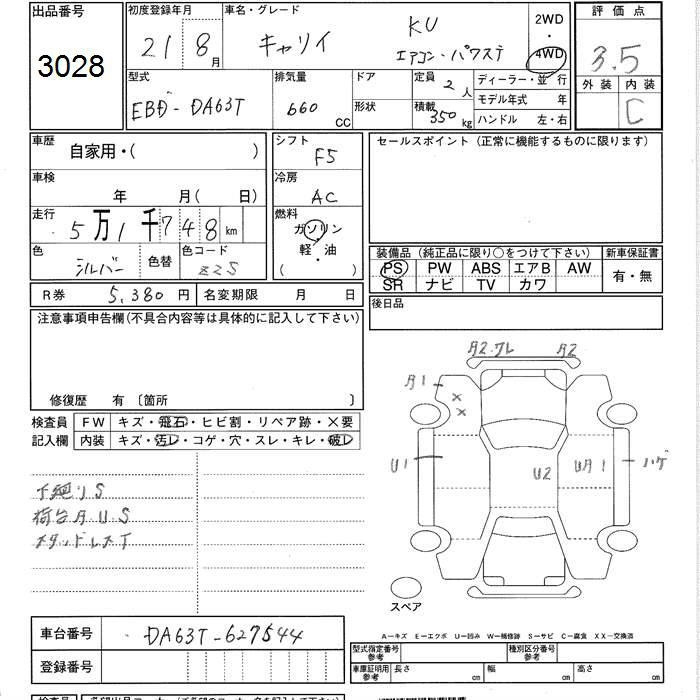 出品番号 初度登録年月 車名・グレード 2WD・4WD 評価点
3028 21年 8月 キャリイ KU エアコン・パワステ 3.5
外装 内装 C
型式 排気量 ドア 定員 2人 ディーラー・並行
EBD-DA63T 660 CC 形状 積載 350 kg モデル年式 年
ハンドル 左・右
車歴 自家用・( ) シフト F5 セールスポイント (正常に機能するものに限ります)
車検 年 月( 日) 冷房 AC
走行 5万1千748km 燃料 ガソリン 軽・油 ( )
色 シルバー 色替 色コード Z2S
装備品 (純正品に限り○をつけて下さい) 新車保証書
PS PW ABS エアB AW 有・無
SR ナビ TV カワ
R券 5,380円 名変期限 月 日 後日品
注意事項申告欄(不具合内容等は具体的に記入して下さい)
修復歴 有 〔箇所 〕
検査員 FW キズ・飛石・ヒビ割・リペア跡・×要
記入欄 内装 キズ・汚レ・コゲ・穴・スレ・キレ・破レ
下廻りS
荷台A.U.S
スタッドレスT
A2.ワレ A2
A1 × ×
U1 U2 UA1 ハゲ
スペア
A-キズ E-エクボ U-凹み W-補修跡 S-サビ C-腐食 XX-交換済
車台番号 DA63T-627544
登録番号
型式指定番号 参考 種別区分番号 参考
車庫証明用 参考 長さ cm 幅 cm 高さ cm